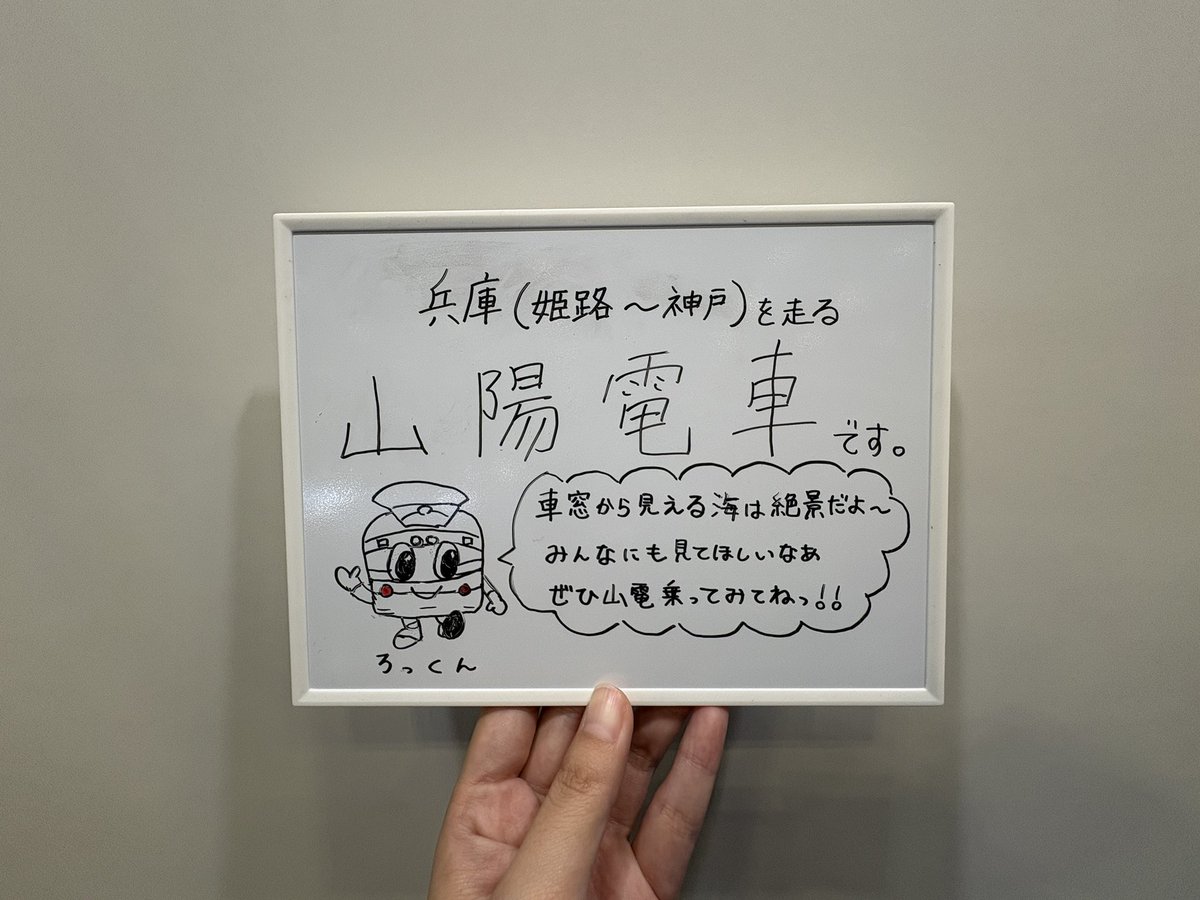 兵庫(姫路〜神戸)を走る
山陽電車です。
車窓から見える海は絶景だよ〜
みんなにも見てほしいなあ
ぜひ山電乗ってみてねっ!!
ろっくん